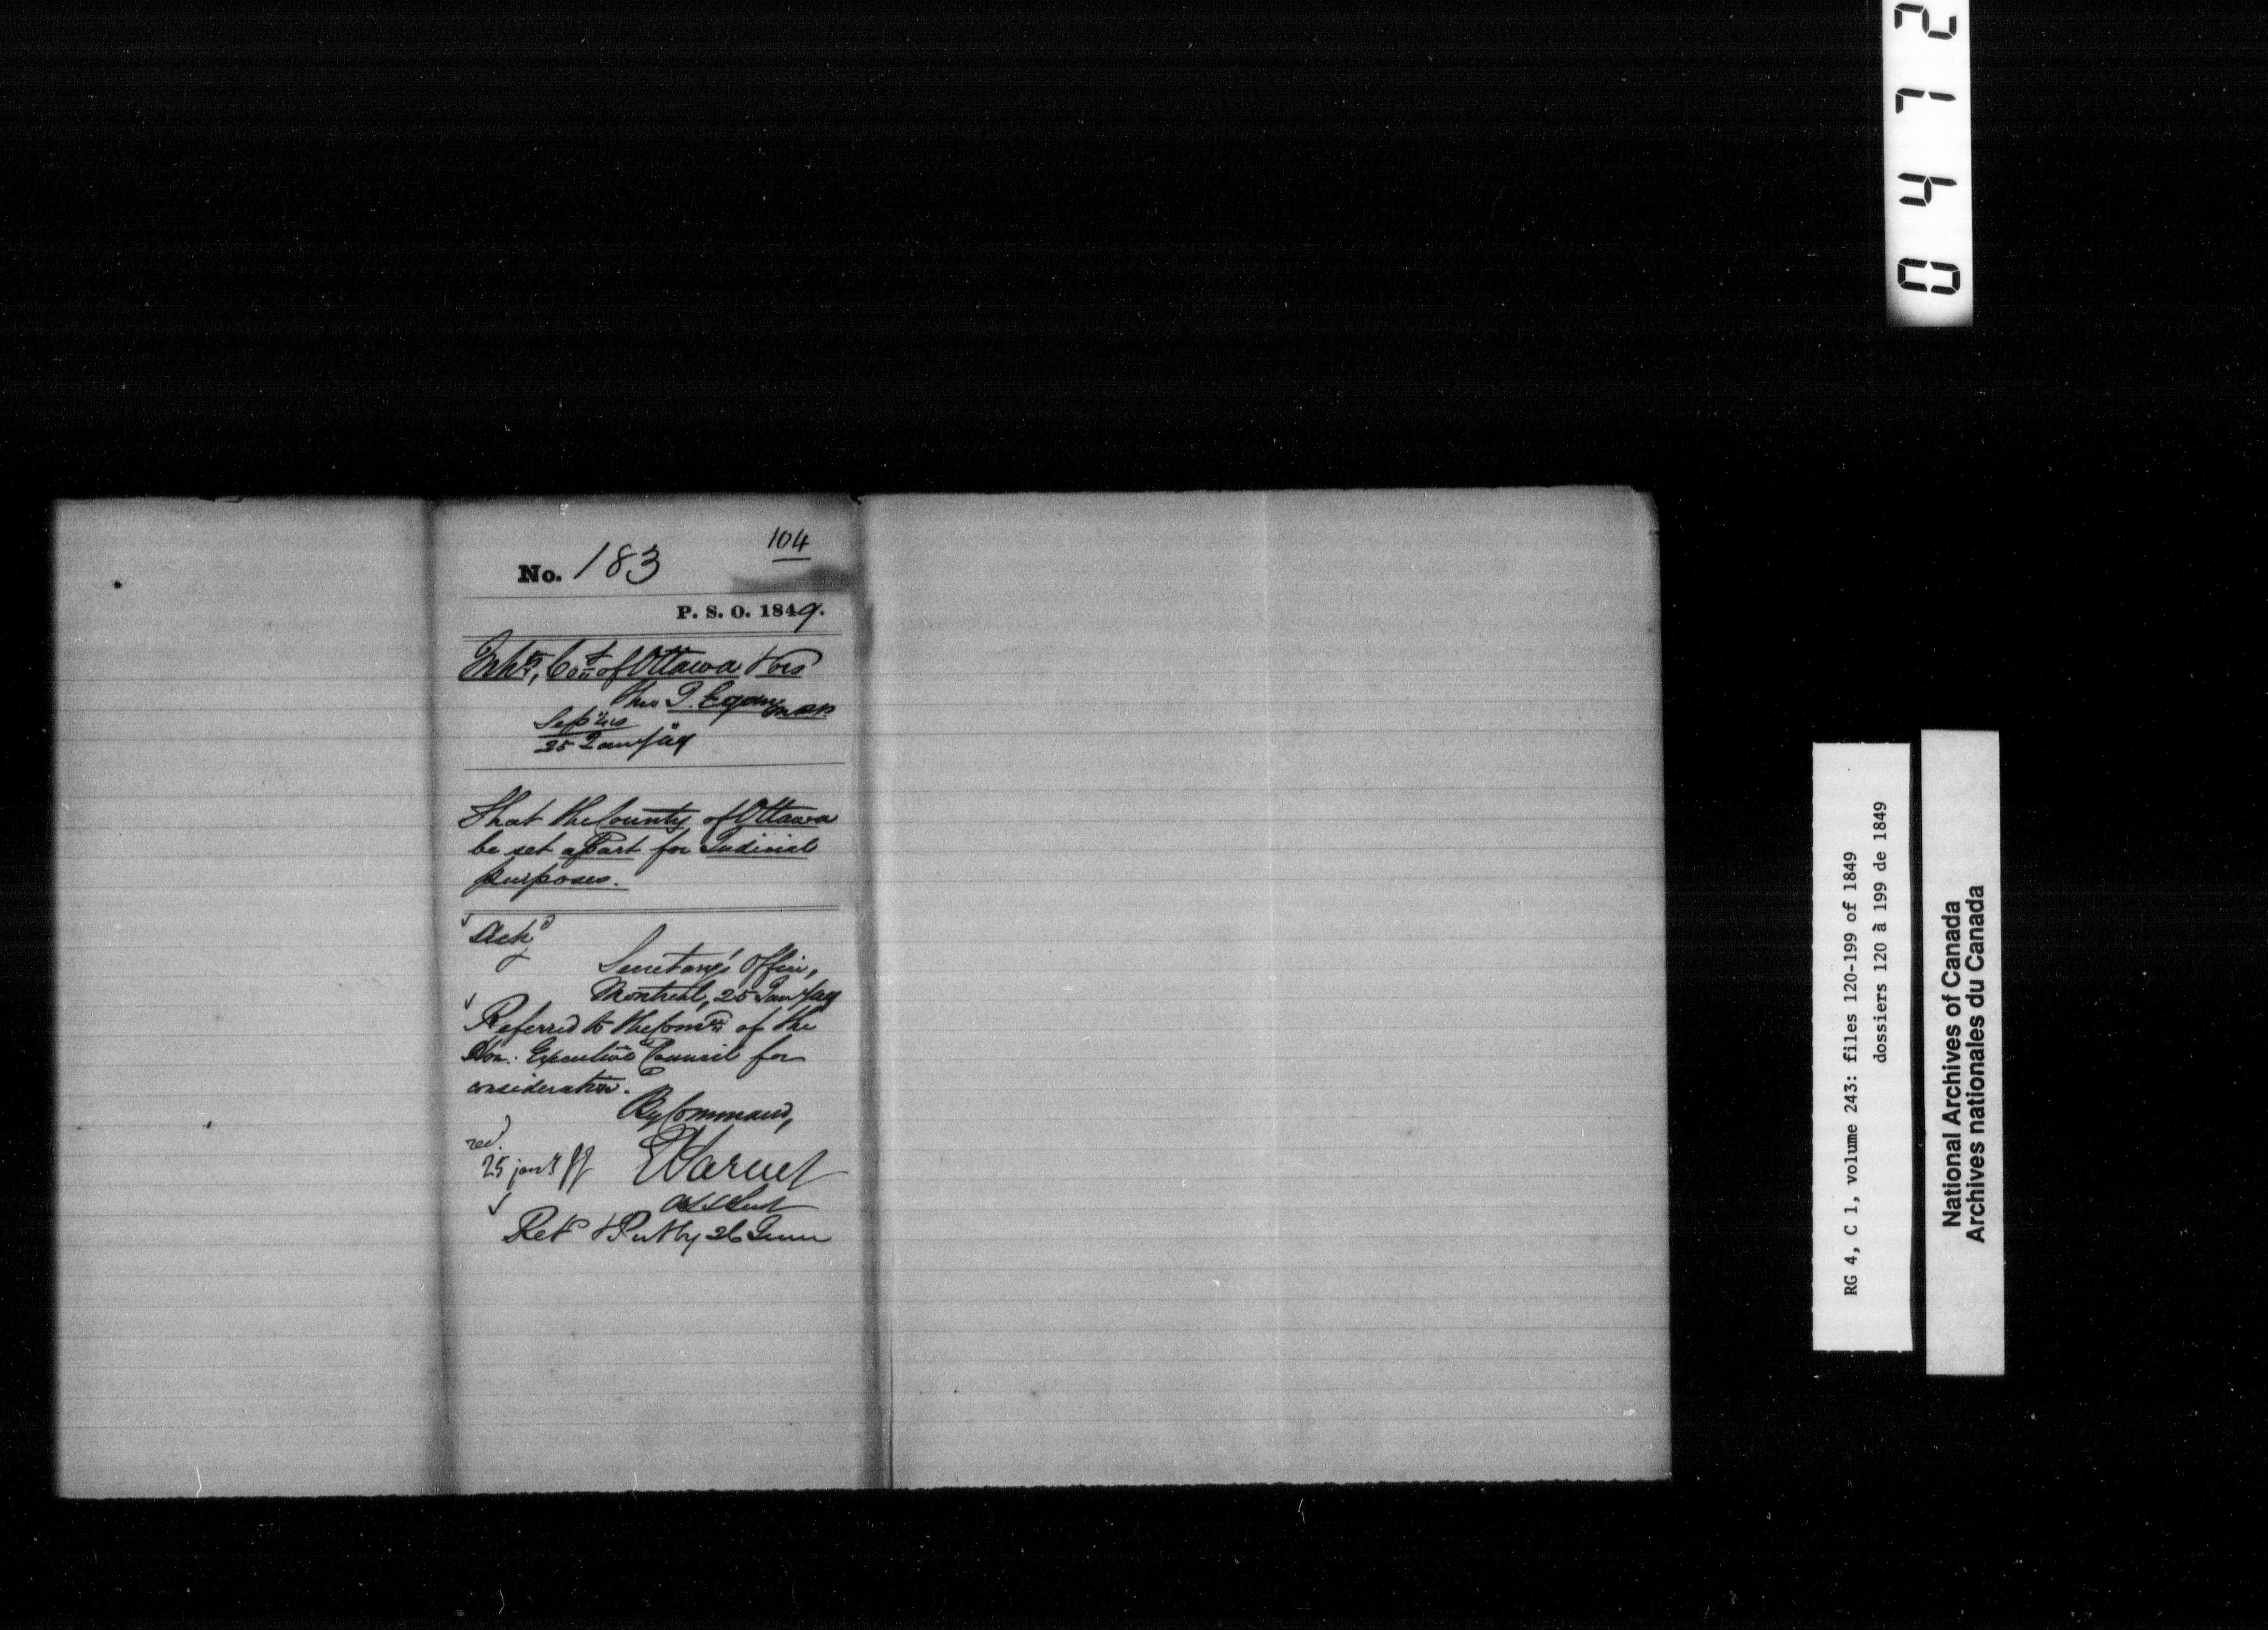 104
No. 183
P. S. O. 1849.
Inhts, Coty of Ottawa &
thro J. Egan, MPP.
25 Jany/49
That the County of Ottawa
be set apart for Judicial
purposes.
Ackd
Secretary's Office,
Montreal, 25 Jany/49
Referred to the Comee of the
Hon: Executive Council for
consideration.
By Command,
red.
25 janr
Ret &
0472
RG 4, C 1, volume 243: files 120-199 of 1849
dossiers 120 à 199 de 1849
National Archives of Canada
Archives nationales du Canada